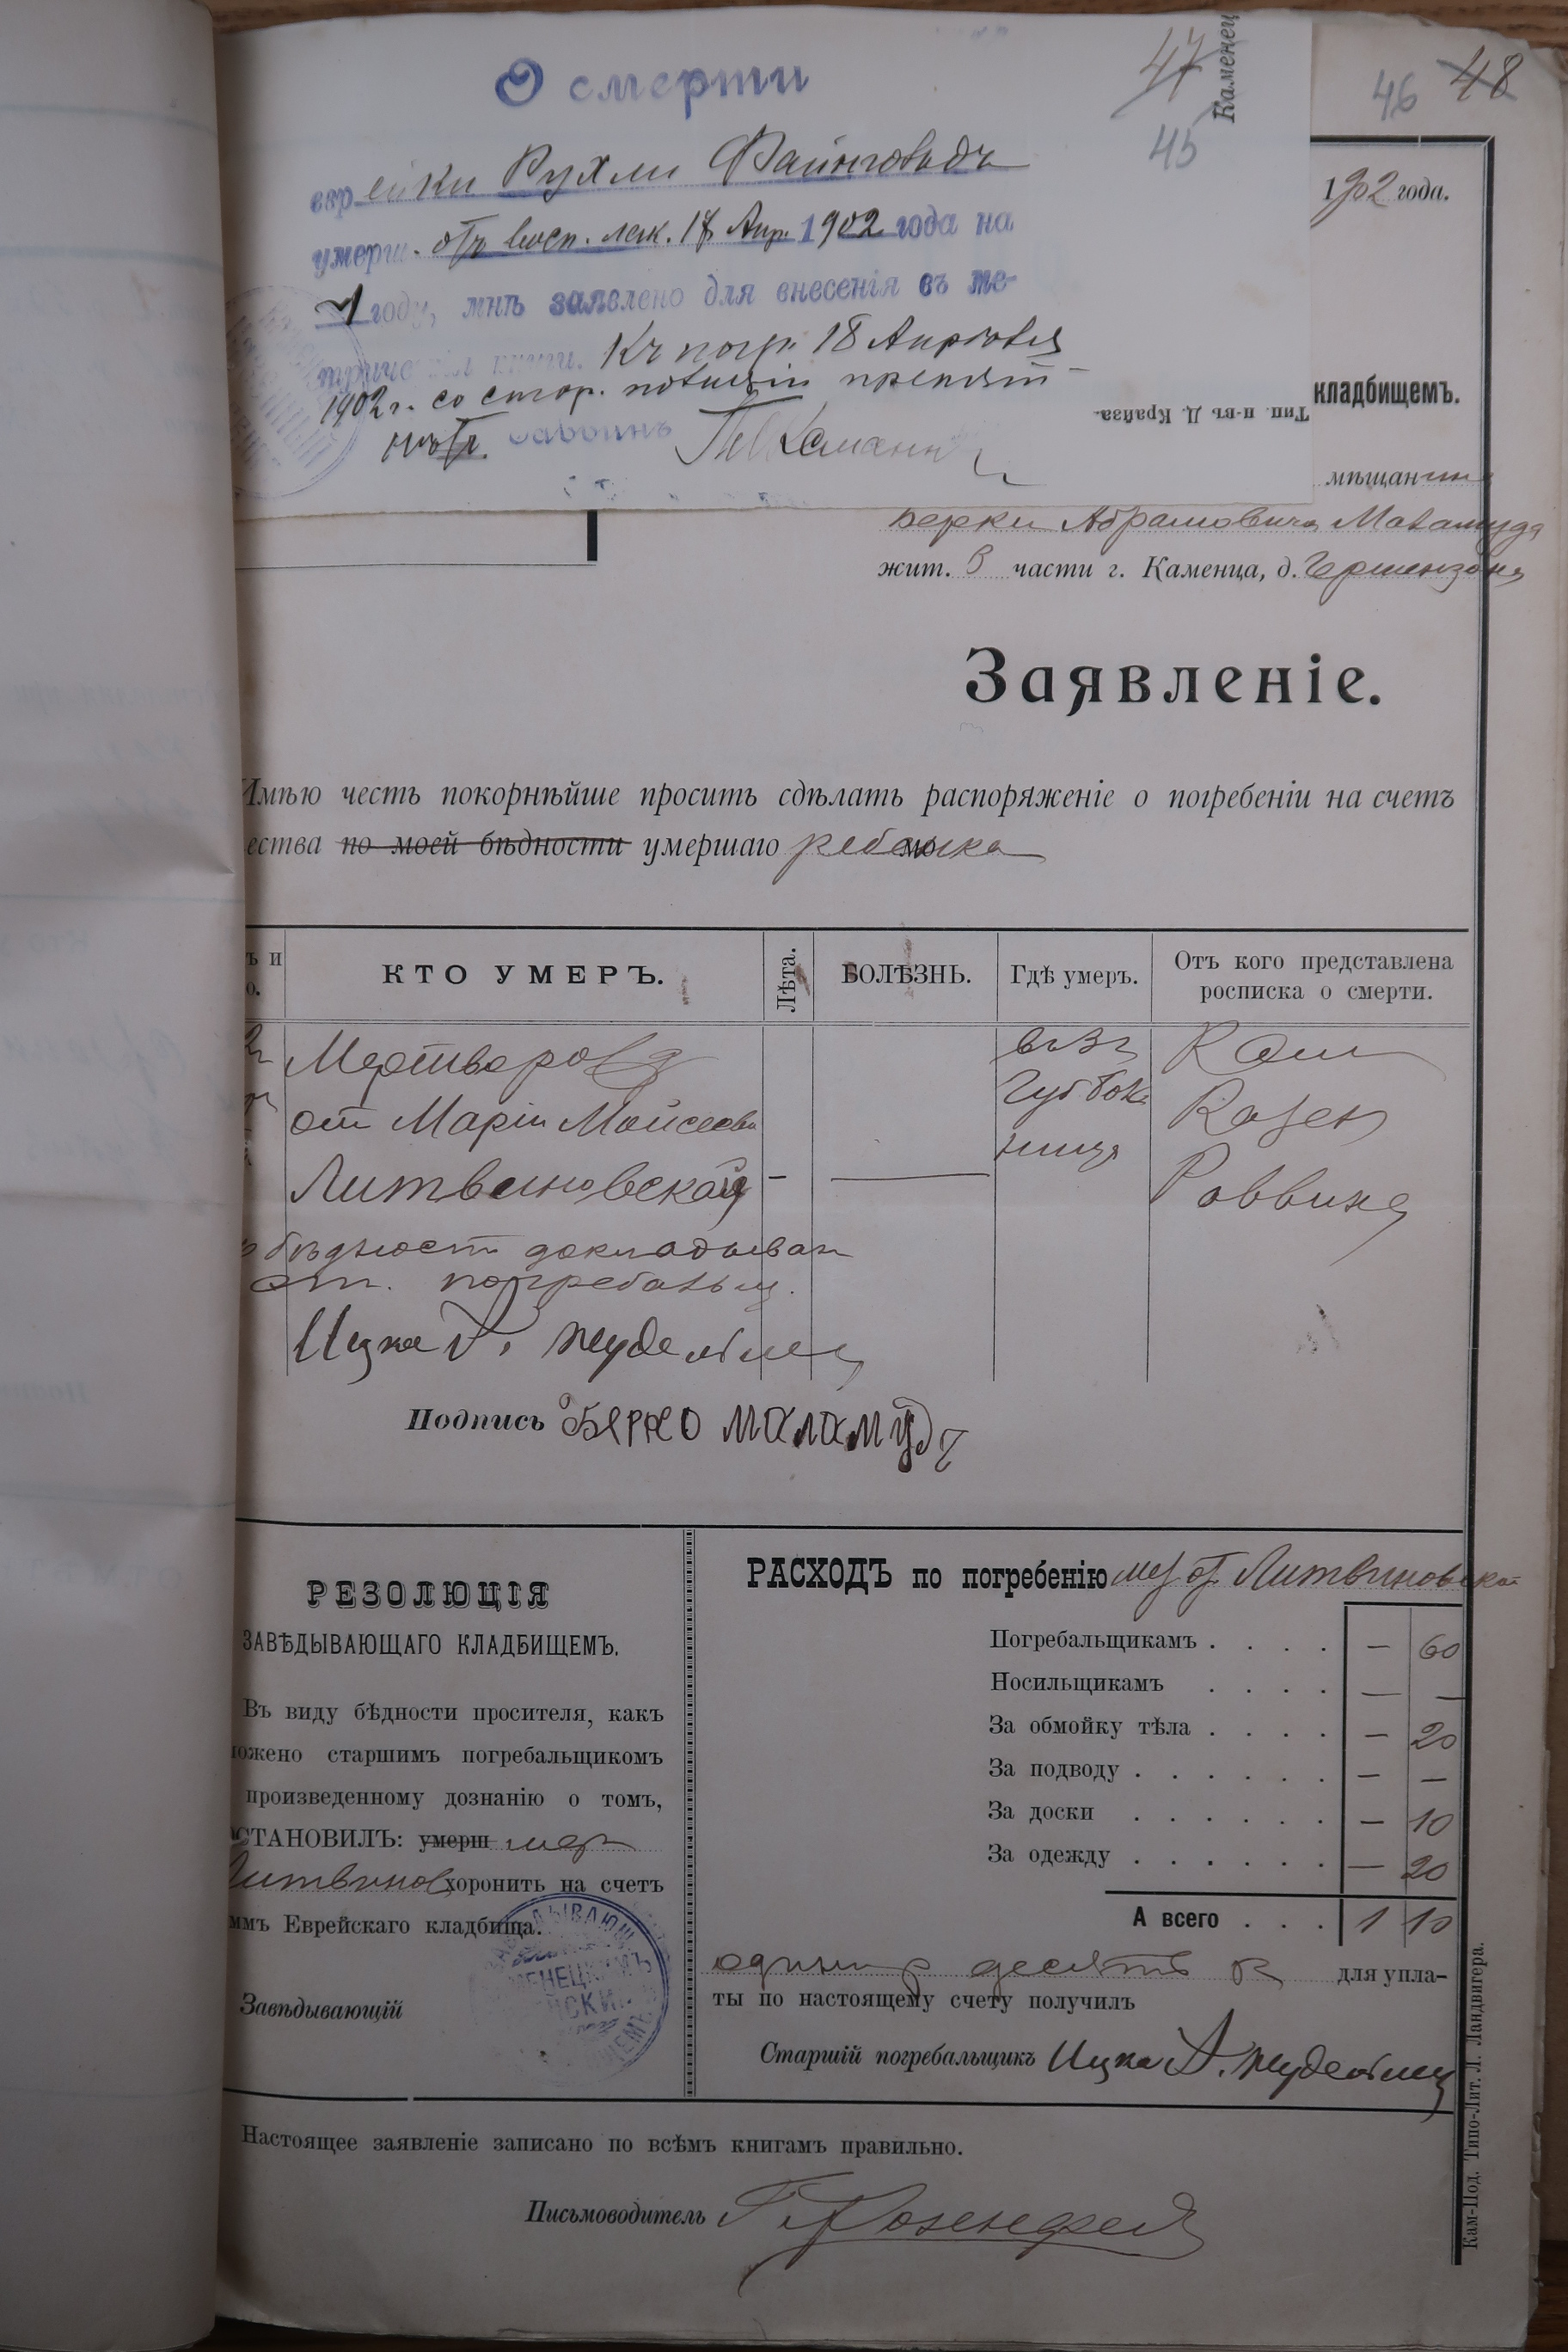 О смерти
еврейки Рухли Файнговъдъ
умерш. отъ восп. легк. 17 Апр. 1902 года на
1 году, мнѣ заявлено для внесенія въ ме-
трическія книги. Къ погр. 18 Апрѣля
1902 г. со стор. полиціи препят-
нѣтъ. Раввинъ
47
45
Каменец
46 48
1902 года.
кладбищемъ.
Тип. н-въ Д. Крайза.
мѣщанина
Берки Абрамовича Маламуда
жит. 3 части г. Каменца, д. Гершензона
Заявленіе.
Имѣю честь покорнѣйше просить сдѣлать распоряженіе о погребеніи на счетъ
ества по моей бѣдности умершаго ребенка
ъ и
о.
КТО УМЕРЪ.
Лѣта.
БОЛѢЗНЬ.
Гдѣ умеръ.
Отъ кого представлена
росписка о смерти.
Мертворо
от Маріи Моисеев
Литвиновской
—
въ 3 ч
ница
Кам
Казен
Раввина
бѣдност докладывая
погребальщ.
Ицка
Подпись Берко Маламудъ
РЕЗОЛЮЦІЯ
ЗАВѢДЫВАЮЩАГО КЛАДБИЩЕМЪ.
Въ виду бѣдности просителя, какъ
ложено старшимъ погребальщикомъ
произведенному дознанію о томъ,
ОСТАНОВИЛЪ: умерш мер
Литвинов хоронить на счетъ
ммъ Еврейскаго кладбища.
Завѣдывающій
РАСХОДЪ по погребенію мер от Литвиновской
Погребальщикамъ . . . . — 60
Носильщикамъ . . . . — —
За обмойку тѣла . . . . — 20
За подводу . . . . . . — —
За доски . . . . . . — 10
За одежду . . . . . . — 20
А всего . . . 1 10
один р десять к для упла-
ты по настоящему счету получилъ
Старшій погребальщикъ Ицка
Настоящее заявленіе записано по всѣмъ книгамъ правильно.
Письмоводитель Розенфел
Кам-Под. Типо-Лит. Л. Ландвигера.